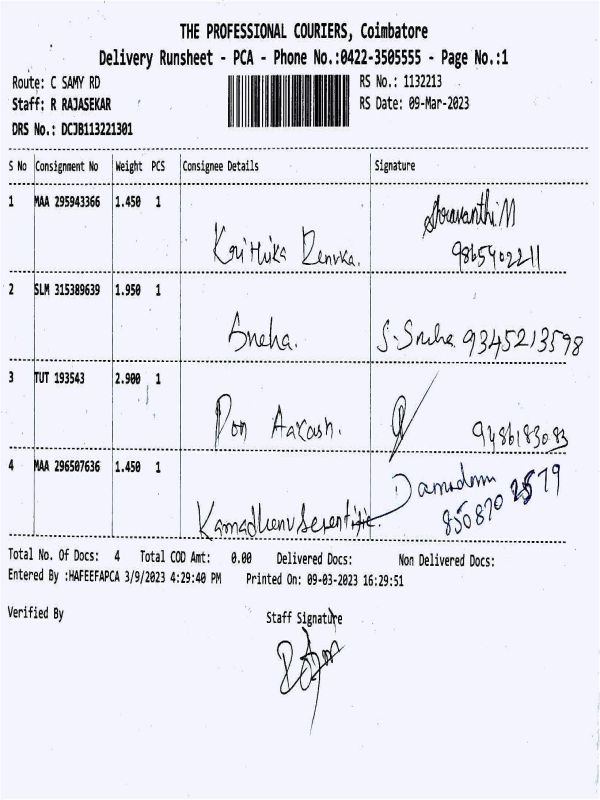 THE PROFESSIONAL COURIERS, Coimbatore
Delivery Runsheet - PCA - Phone No.:0422-3505555 - Page No.:1
Route: C SAMY RD
RS No.: 1132213
Staff: R RAJASEKAR
RS Date: 09-Mar-2023
DRS No.: DCJB113221301
S No Consignment No Weight PCS Consignee Details Signature
1 MAA 295943366 1.450 1
Shravanthi.M
Krithika Renuka.
9865402211
2 SLM 315389639 1.950 1
Sneha. S. Sneha 9345213598
3 TUT 193543 2.900 1
Don Aakash. 9486183083
4 MAA 296507636 1.450 1
Kamadhenu
Total No. Of Docs: 4 Total COD Amt: 0.00 Delivered Docs: Non Delivered Docs:
Entered By :HAFEEFAPCA 3/9/2023 4:29:40 PM Printed On: 09-03-2023 16:29:51
Verified By Staff Signature